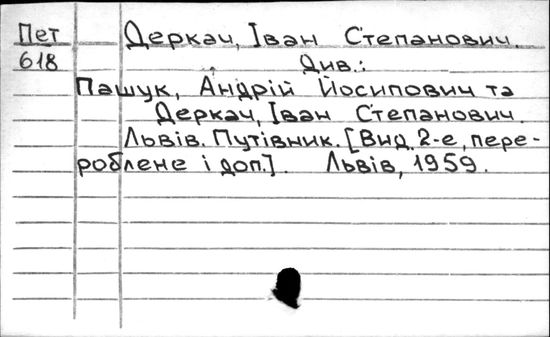 Пет
618
Деркач, Іван Степанович.
Див.:
Пашук, Андрій Йосипович та
Деркач, Іван Степанович.
Львів. Путівник. [Вид. 2-е, пере-
роблене і доп.]. Львів, 1959.